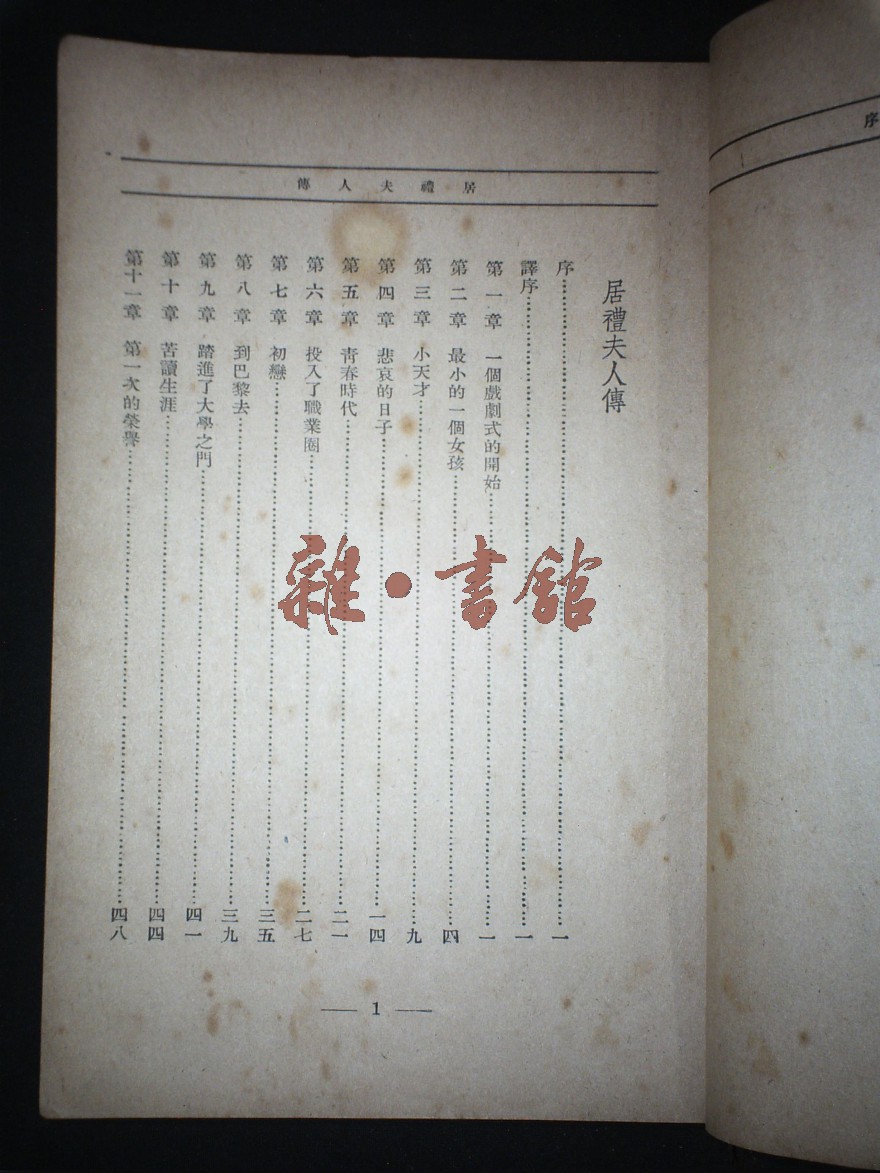 居禮夫人傳
居禮夫人傳
序……一
譯序……一
第一章 一個戲劇式的開始……一
第二章 最小的一個女孩……四
第三章 小天才……九
第四章 悲哀的日子……一四
第五章 青春時代……二一
第六章 投入了職業圈……二七
第七章 初戀……三五
第八章 到巴黎去……三九
第九章 踏進了大學之門……四一
第十章 苦讀生涯……四四
第十一章 第一次的榮譽……四八
— 1 —
序
雜·書館